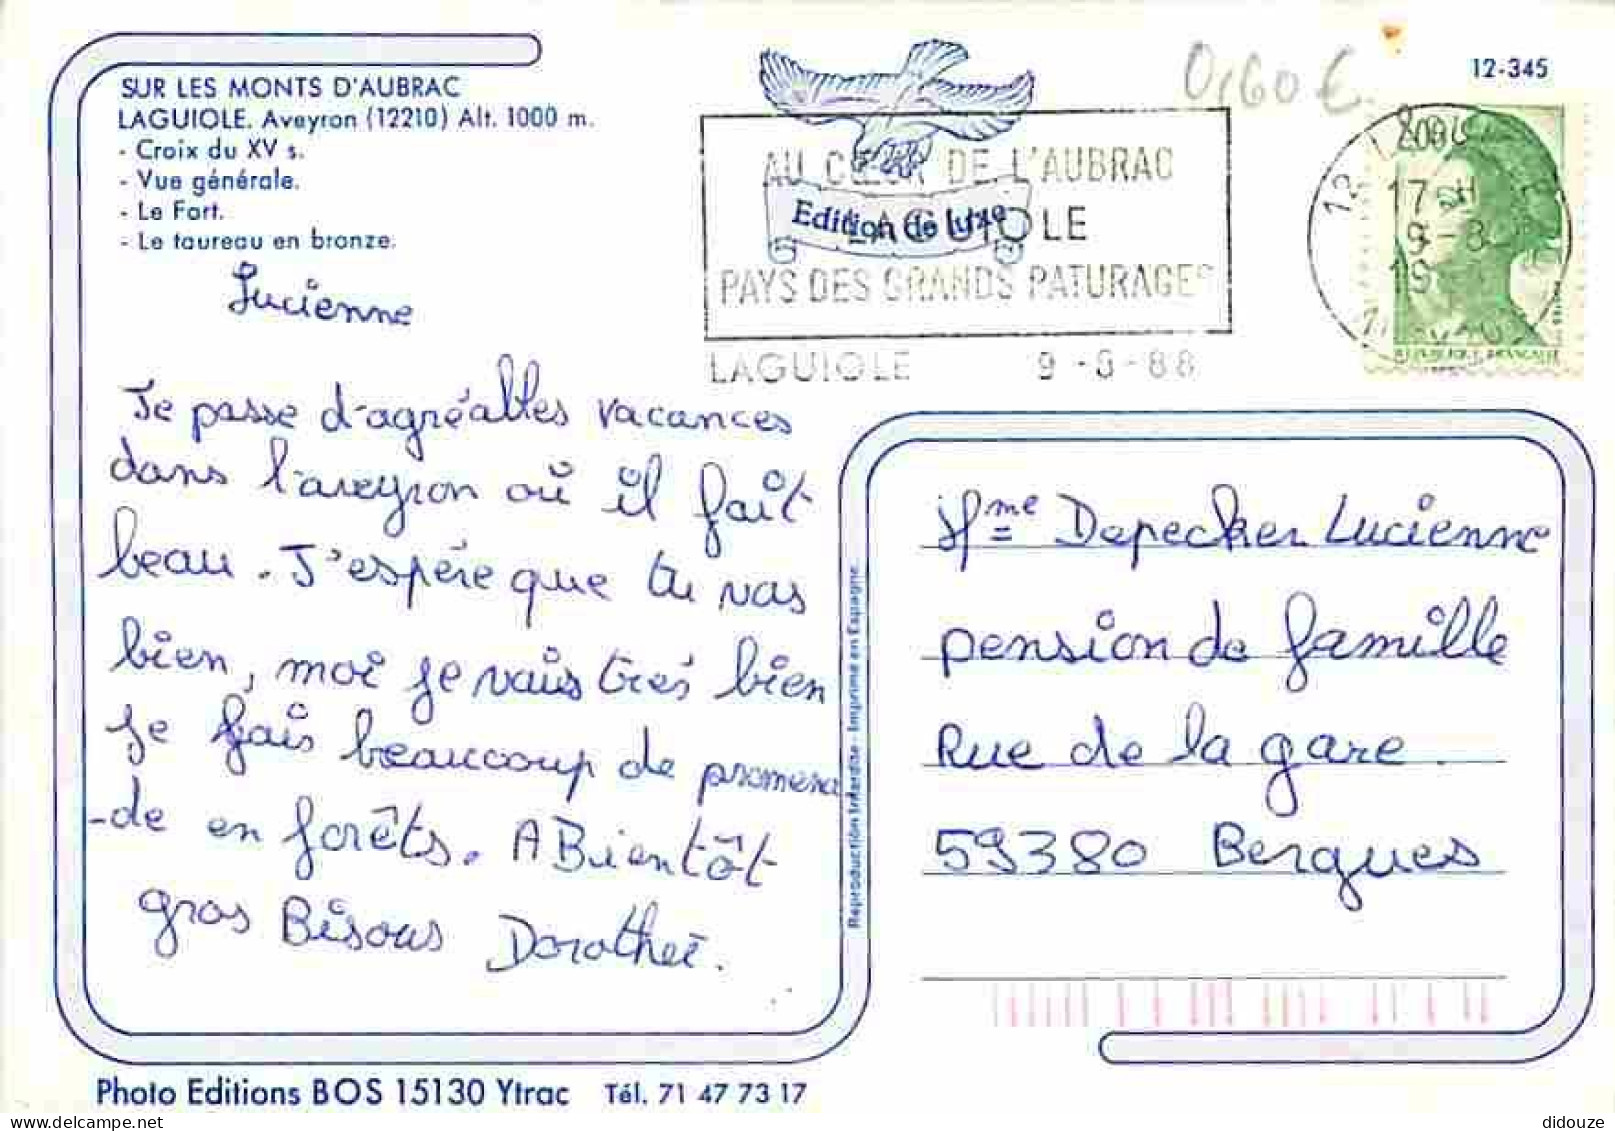 SUR LES MONTS D'AUBRAC
LAGUIOLE. Aveyron (12210) Alt. 1000 m.
- Croix du XV s.
- Vue générale.
- Le Fort.
- Le taureau en bronze.
Lucienne
Je passe d'agréables vacances
dans l'aveyron où il fait
beau. J'espére que tu vas
bien, moi je vais très bien
je fais beaucoup de promena
-de en forêts. A Bientôt
gros Bisous Dorotheé.
Photo Editions BOS 15130 Ytrac Tél. 71 47 73 17
Reproduction Interdite - Imprimé en Espagne.
0,60 €
12-345
Edition de luxe
AU CŒUR DE L'AUBRAC
LAGUIOLE
PAYS DES GRANDS PATURAGES
LAGUIOLE 9-8-88
2,00
17 H
9-8
19
REPUBLIQUE FRANÇAISE
Mme Depecker Lucienne
pension de famille
Rue de la gare.
59380 Bergues
didouze @ Delcampe.net